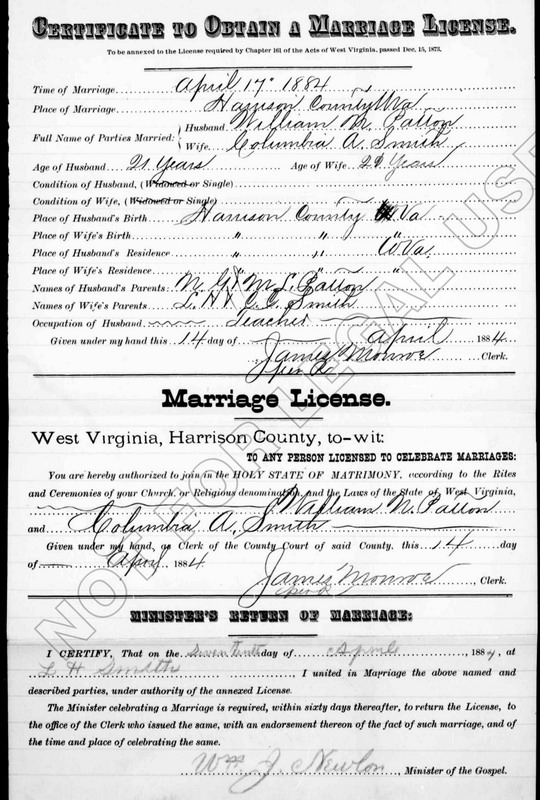 CERTIFICATE TO OBTAIN A MARRIAGE LICENSE.
To be annexed to the License required by Chapter 161 of the Acts of West Virginia, passed Dec. 15, 1873.
Time of Marriage April 17" 1884
Place of Marriage Harrison County W Va
Full Name of Parties Married: Husband William M. Patton
Wife Columbia A. Smith
Age of Husband 21 Years Age of Wife 21 Years
Condition of Husband, (Widowed or Single)
Condition of Wife, (Widowed or Single)
Place of Husband's Birth Harrison County W Va
Place of Wife's Birth " "
Place of Husband's Residence " " W Va.
Place of Wife's Residence " " "
Names of Husband's Parents M. G. & M. L. Patton
Names of Wife's Parents L. H. & C. C. Smith
Occupation of Husband Teacher
Given under my hand this 14 day of April 1884.
James Monroe Clerk.
Marriage License.
West Virginia, Harrison County, to-wit:
TO ANY PERSON LICENSED TO CELEBRATE MARRIAGES:
You are hereby authorized to join in the HOLY STATE OF MATRIMONY, according to the Rites
and Ceremonies of your Church, or Religious denomination, and the Laws of the State of West Virginia,
William M. Patton
and Columbia A. Smith
Given under my hand, as Clerk of the County Court of said County, this 14 day
of April 1884
James Monroe, Clerk.
MINISTER'S RETURN OF MARRIAGE:
I CERTIFY, That on the Sevententh day of April, 1884, at
L H Smith, I united in Marriage the above named and
described parties, under authority of the annexed License.
The Minister celebrating a Marriage is required, within sixty days thereafter, to return the License, to
the office of the Clerk who issued the same, with an endorsement thereon of the fact of such marriage, and of
the time and place of celebrating the same.
Wm J. Newlon, Minister of the Gospel.
NOT FOR LEGAL USE